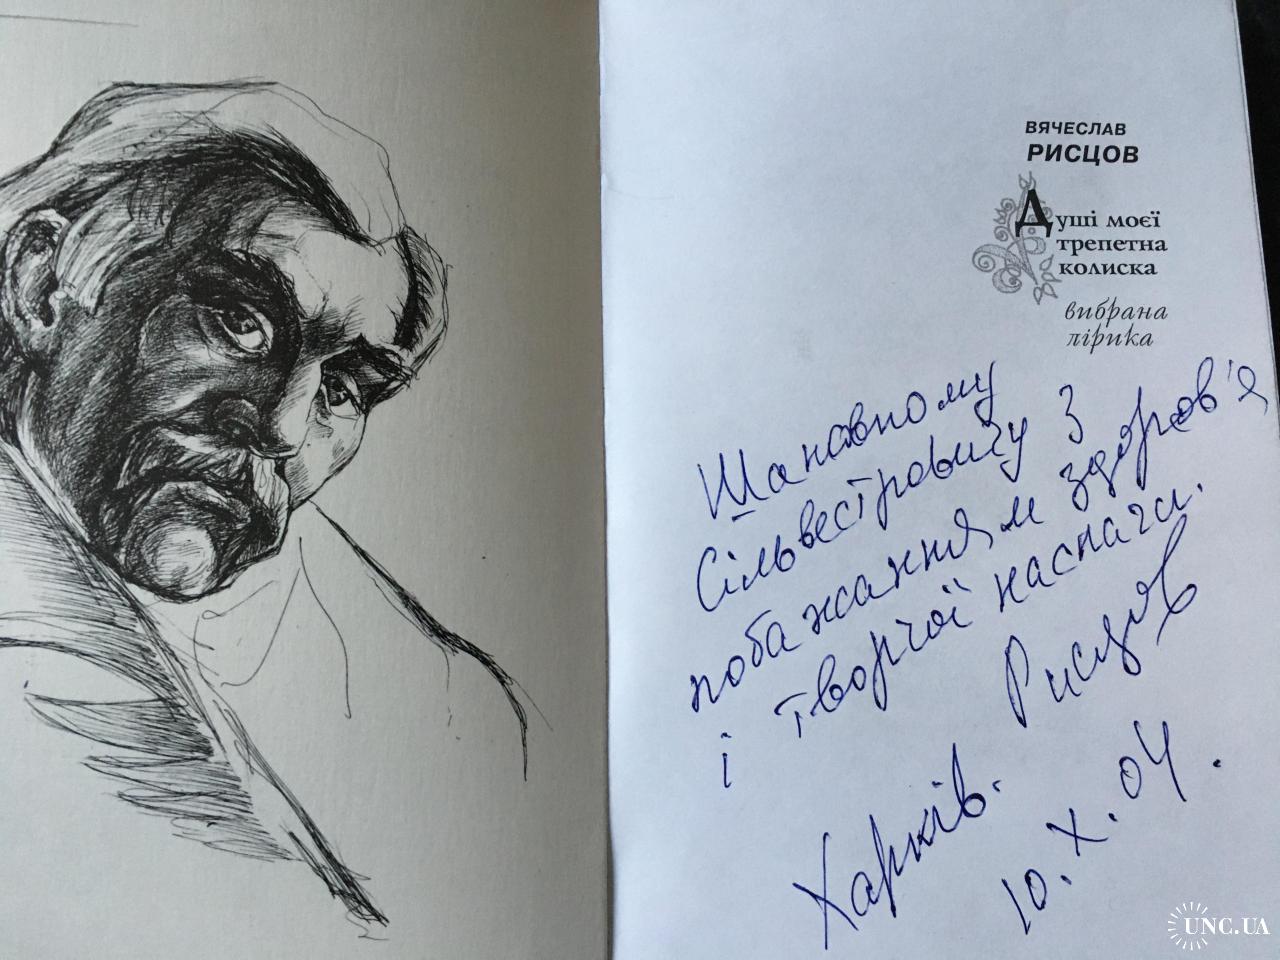 ВЯЧЕСЛАВ
РИСЦОВ
Душі моєї
трепетна
колиска
вибрана
лірика
Шановному
Сільвестровичу з
побажанням здоров'я
і творчої наснаги.
Рисцов
Харків.
10.X.04.
UNC.UA